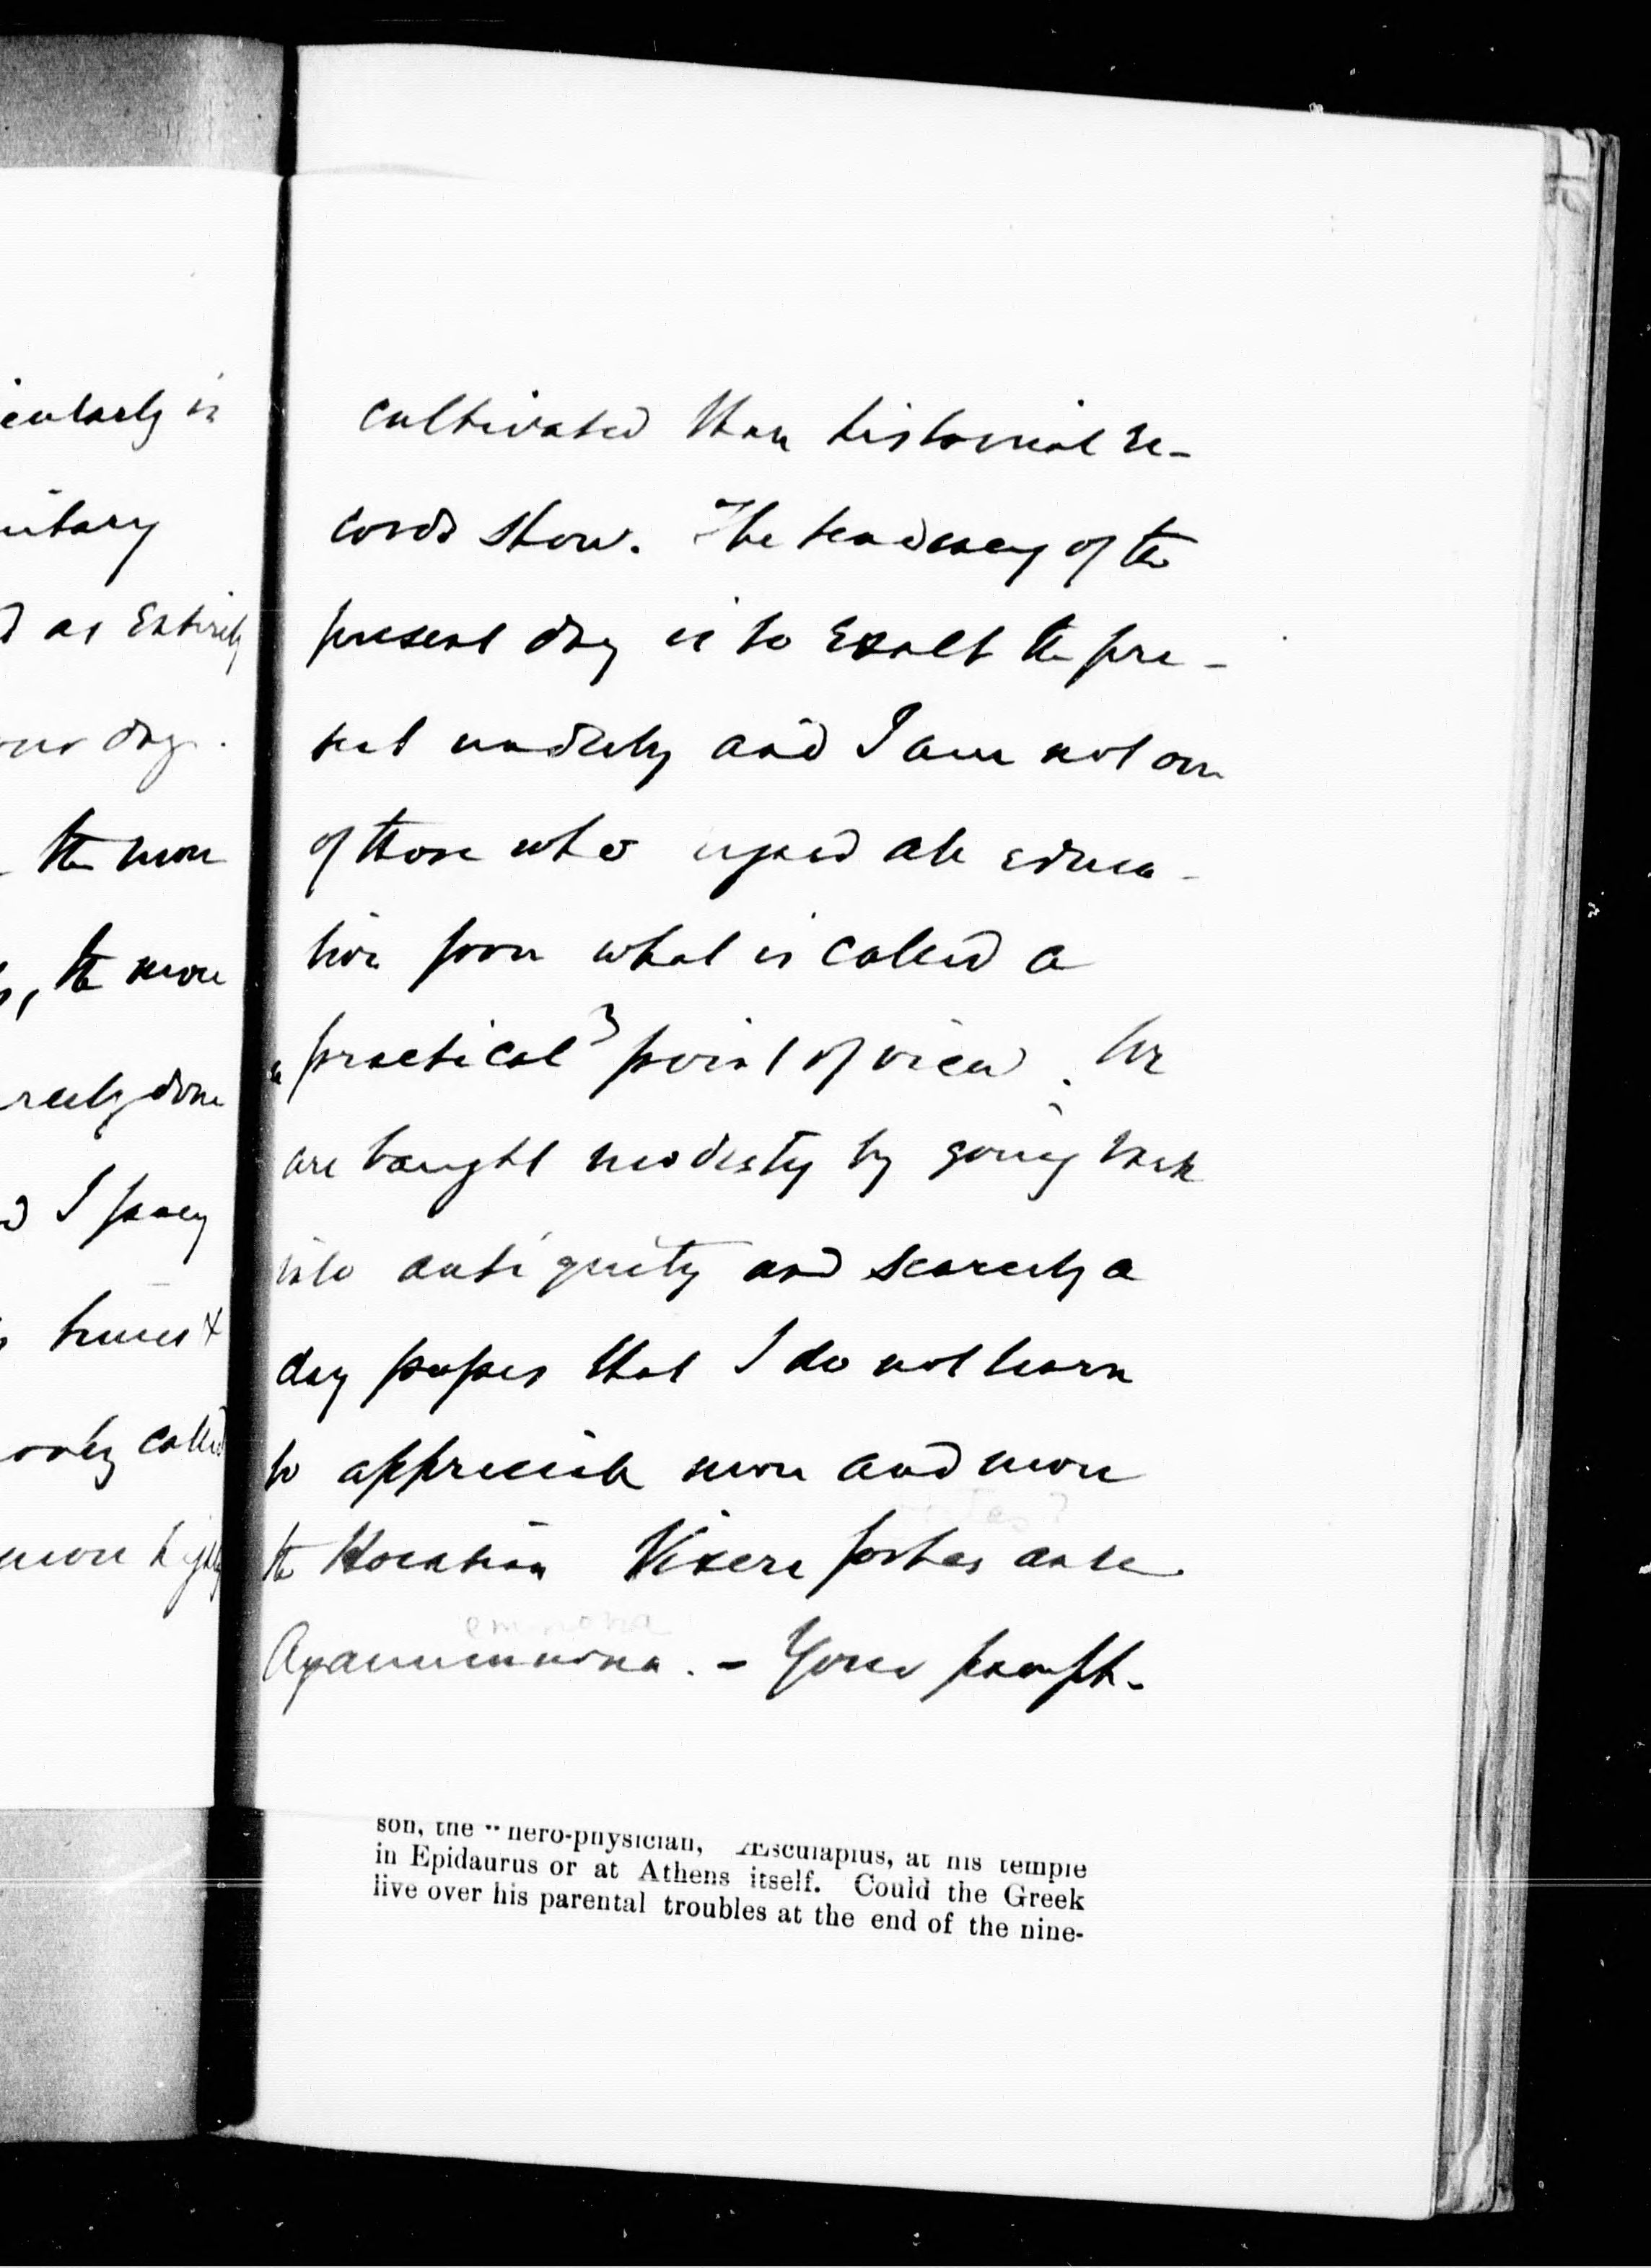 icularly in
nitary
d as Entirely
our day.
the more
, the more
rarely done
d I fancy
times &
only called
more highly
cultivated than historical re-
cords show. The tendency of the
present day is to Exalt the pre-
sent unduly and I am not one
of those who regard all educa-
tion from what is called a
"practical" point of view. We
are taught modesty by going back
into antiquity and scarcely a
day passes that I do not learn
to appreciate more and more
the Horatian Vixere fortes ante
emnona
Agamemnona. - Yours faithf.
son, the "hero-physician, Æsculapius, at his temple
in Epidaurus or at Athens itself. Could the Greek
live over his parental troubles at the end of the nine-